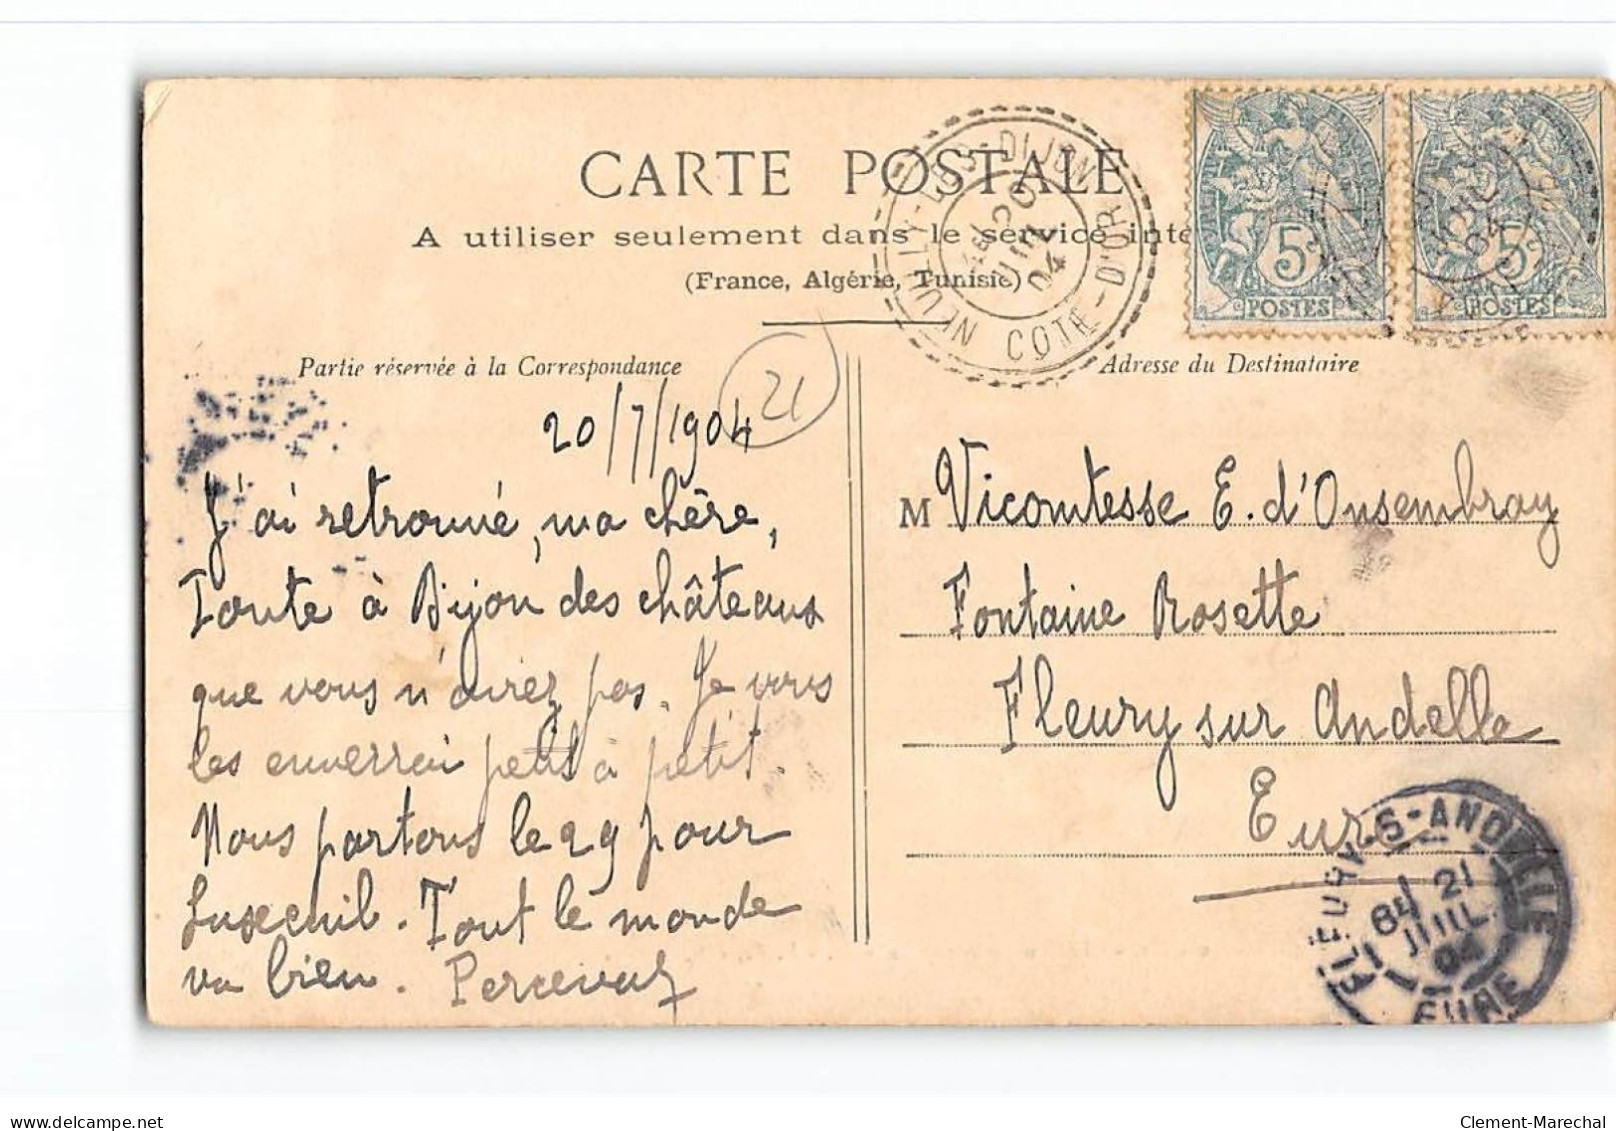 CARTE POSTALE
A utiliser seulement dans le service inte
(France, Algérie, Tunisie)
NEUILLY-LES-DIJON
COTE-D'OR
20
JUIL
04
5c
POSTES
5c
POSTES
Partie réservée à la Correspondance
21
20/7/1904
J'ai retrouvé, ma chère,
Toute à Dijon des châteaux
que vous n'avez pas. Je vous
les enverrai petit à petit.
Nous partons le 29 pour
Luxeuil. Tout le monde
va bien. Perceval
Adresse du Destinataire
M Vicomtesse E. d'Onsembray
Fontaine Rosette
Fleury sur Andelle
Eure
FLEURY-S-ANDELLE
6E 21
JUIL
04
EURE
Clement-Marechal